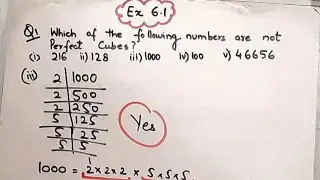 Ex 6.1
Q1 Which of the following numbers are not
Perfect Cubes?
(i) 216 ii) 128 iii) 1000 iv) 100 v) 46656
(iii)
2 1000
2 500
2 250
5 125
5 25
5 5
1
Yes
1000 = 2 × 2 × 2 × 5 × 5 × 5